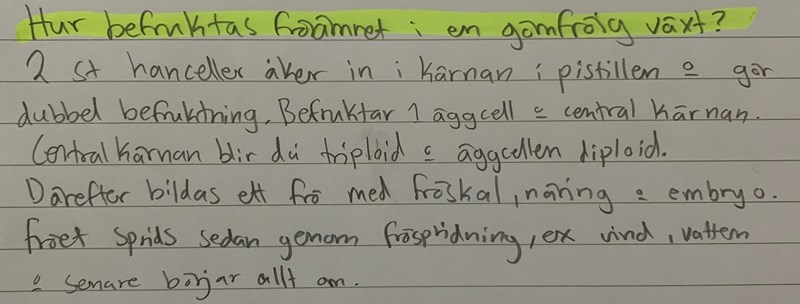 Hur befruktas fröämnet i en gömfröig växt?
2 st hanceller åker in i kärnan i pistillen o gör
dubbel befruktning. Befruktar 1 äggcell o central kärnan.
Centralkärnan blir då triploid o äggcellen diploid.
Därefter bildas ett frö med fröskal, näring o embryo.
fröet sprids sedan genom fröspridning, ex vind, vatten
o senare börjar allt om.